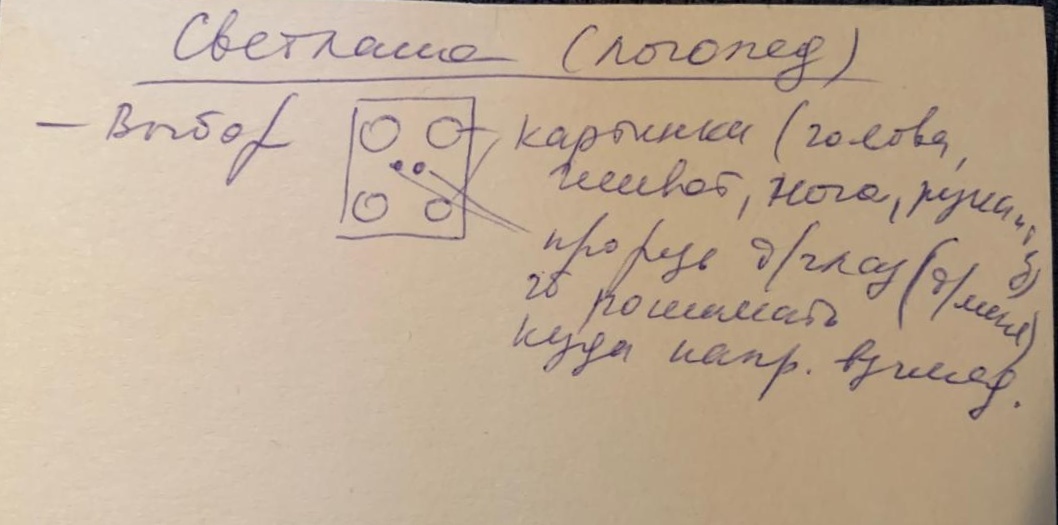 Светлана (логопед)
— Выбор картинки (голова,
живот, нога, рука
прорезь д/глаз (д/меня)
чб понимать
куда напр. взгляд.